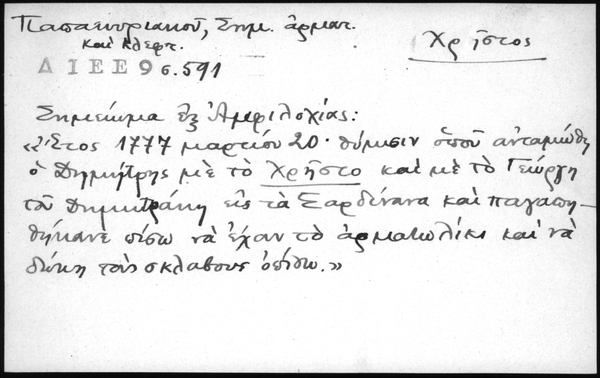 Παπακυριακοῦ, Σημ. ἁρματ.
καὶ κλεφτ.
Χρῆστος
ΔΙΕΕ 9 σ. 591
Σημείωμα ἐξ Ἀμφιλοχίας:
«Ἔτος 1777 μαρτίου 20. θύμισιν ὅπου ἀνταμώθη
ὁ Δημήτρης μὲ τὸ Χρῆστο καὶ μὲ τὸ Γεώργη
τοῦ Δημητράκη εἰς τὰ Σαρδίνανα καὶ παγαπη-
θήκανε πίσω νὰ ἔχουν τὸ ἁρματωλίκι καὶ νὰ
δώκη τοὺς σκλάβους ὀπίσω.»